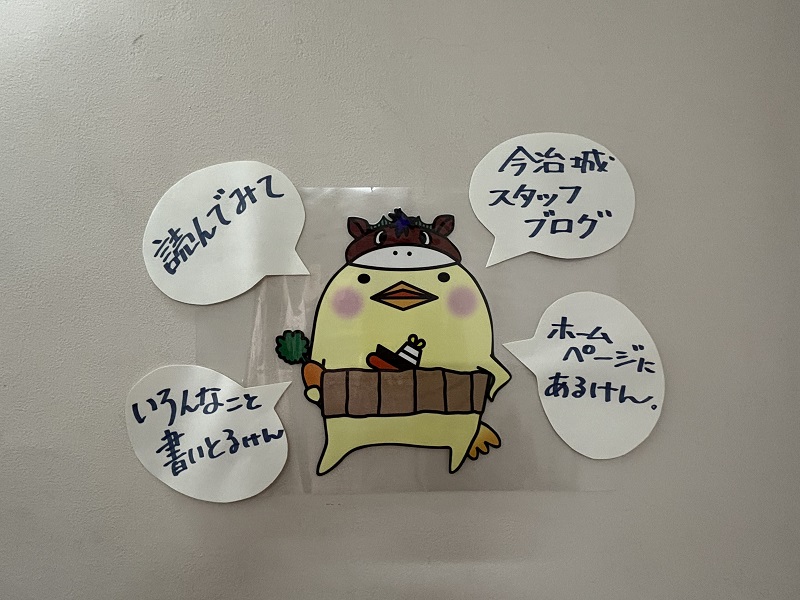 今治城
スタッフ
ブログ
ホーム
ページに
あるけん。
読んでみて
いろんなこと
書いとるけん